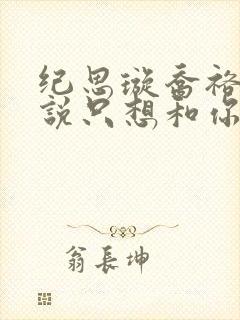 纪思璇乔裕
說只想和你
翁長坤